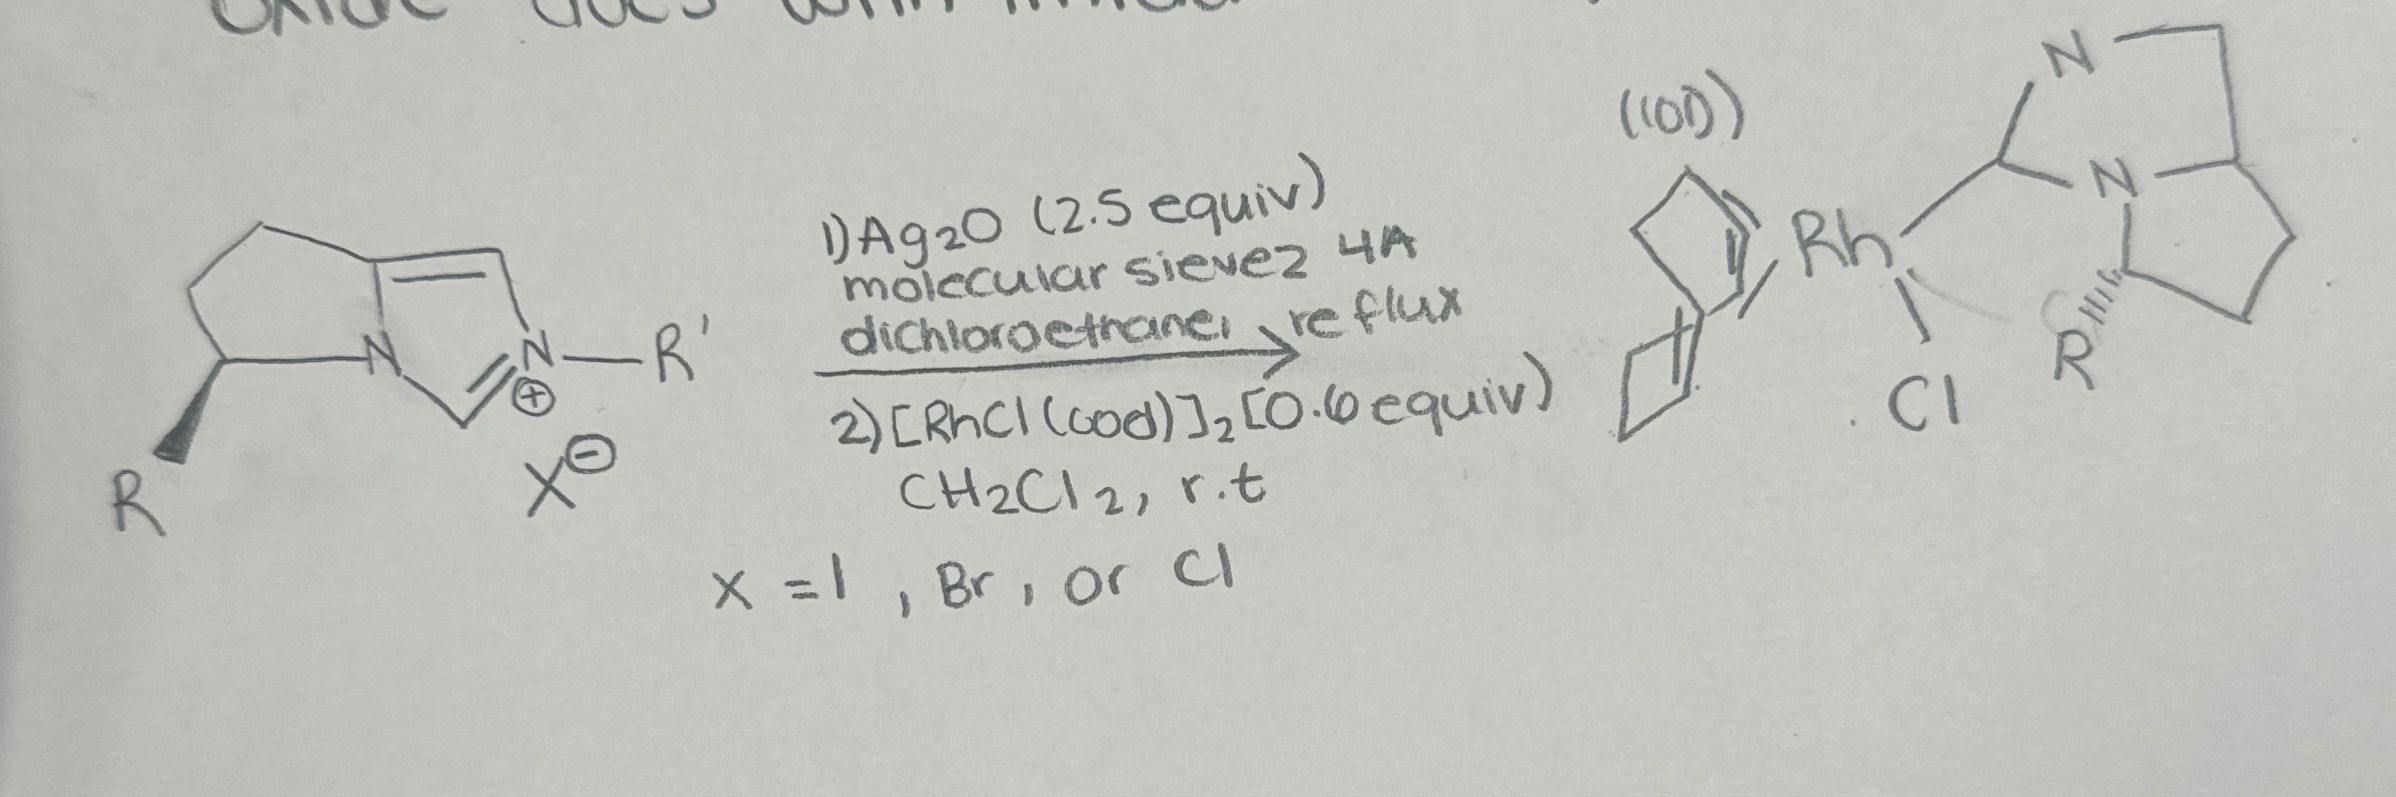 1) Ag2O (2.5 equiv)
molecular sievez 4A
dichloroethane, reflux
2) [RhCl(cod)]2 [0.6 equiv)
CH2Cl2, r.t
X = I, Br, or Cl
N
N
R'
⊕
X⊖
R
(COD)
Rh
Cl
N
N
R